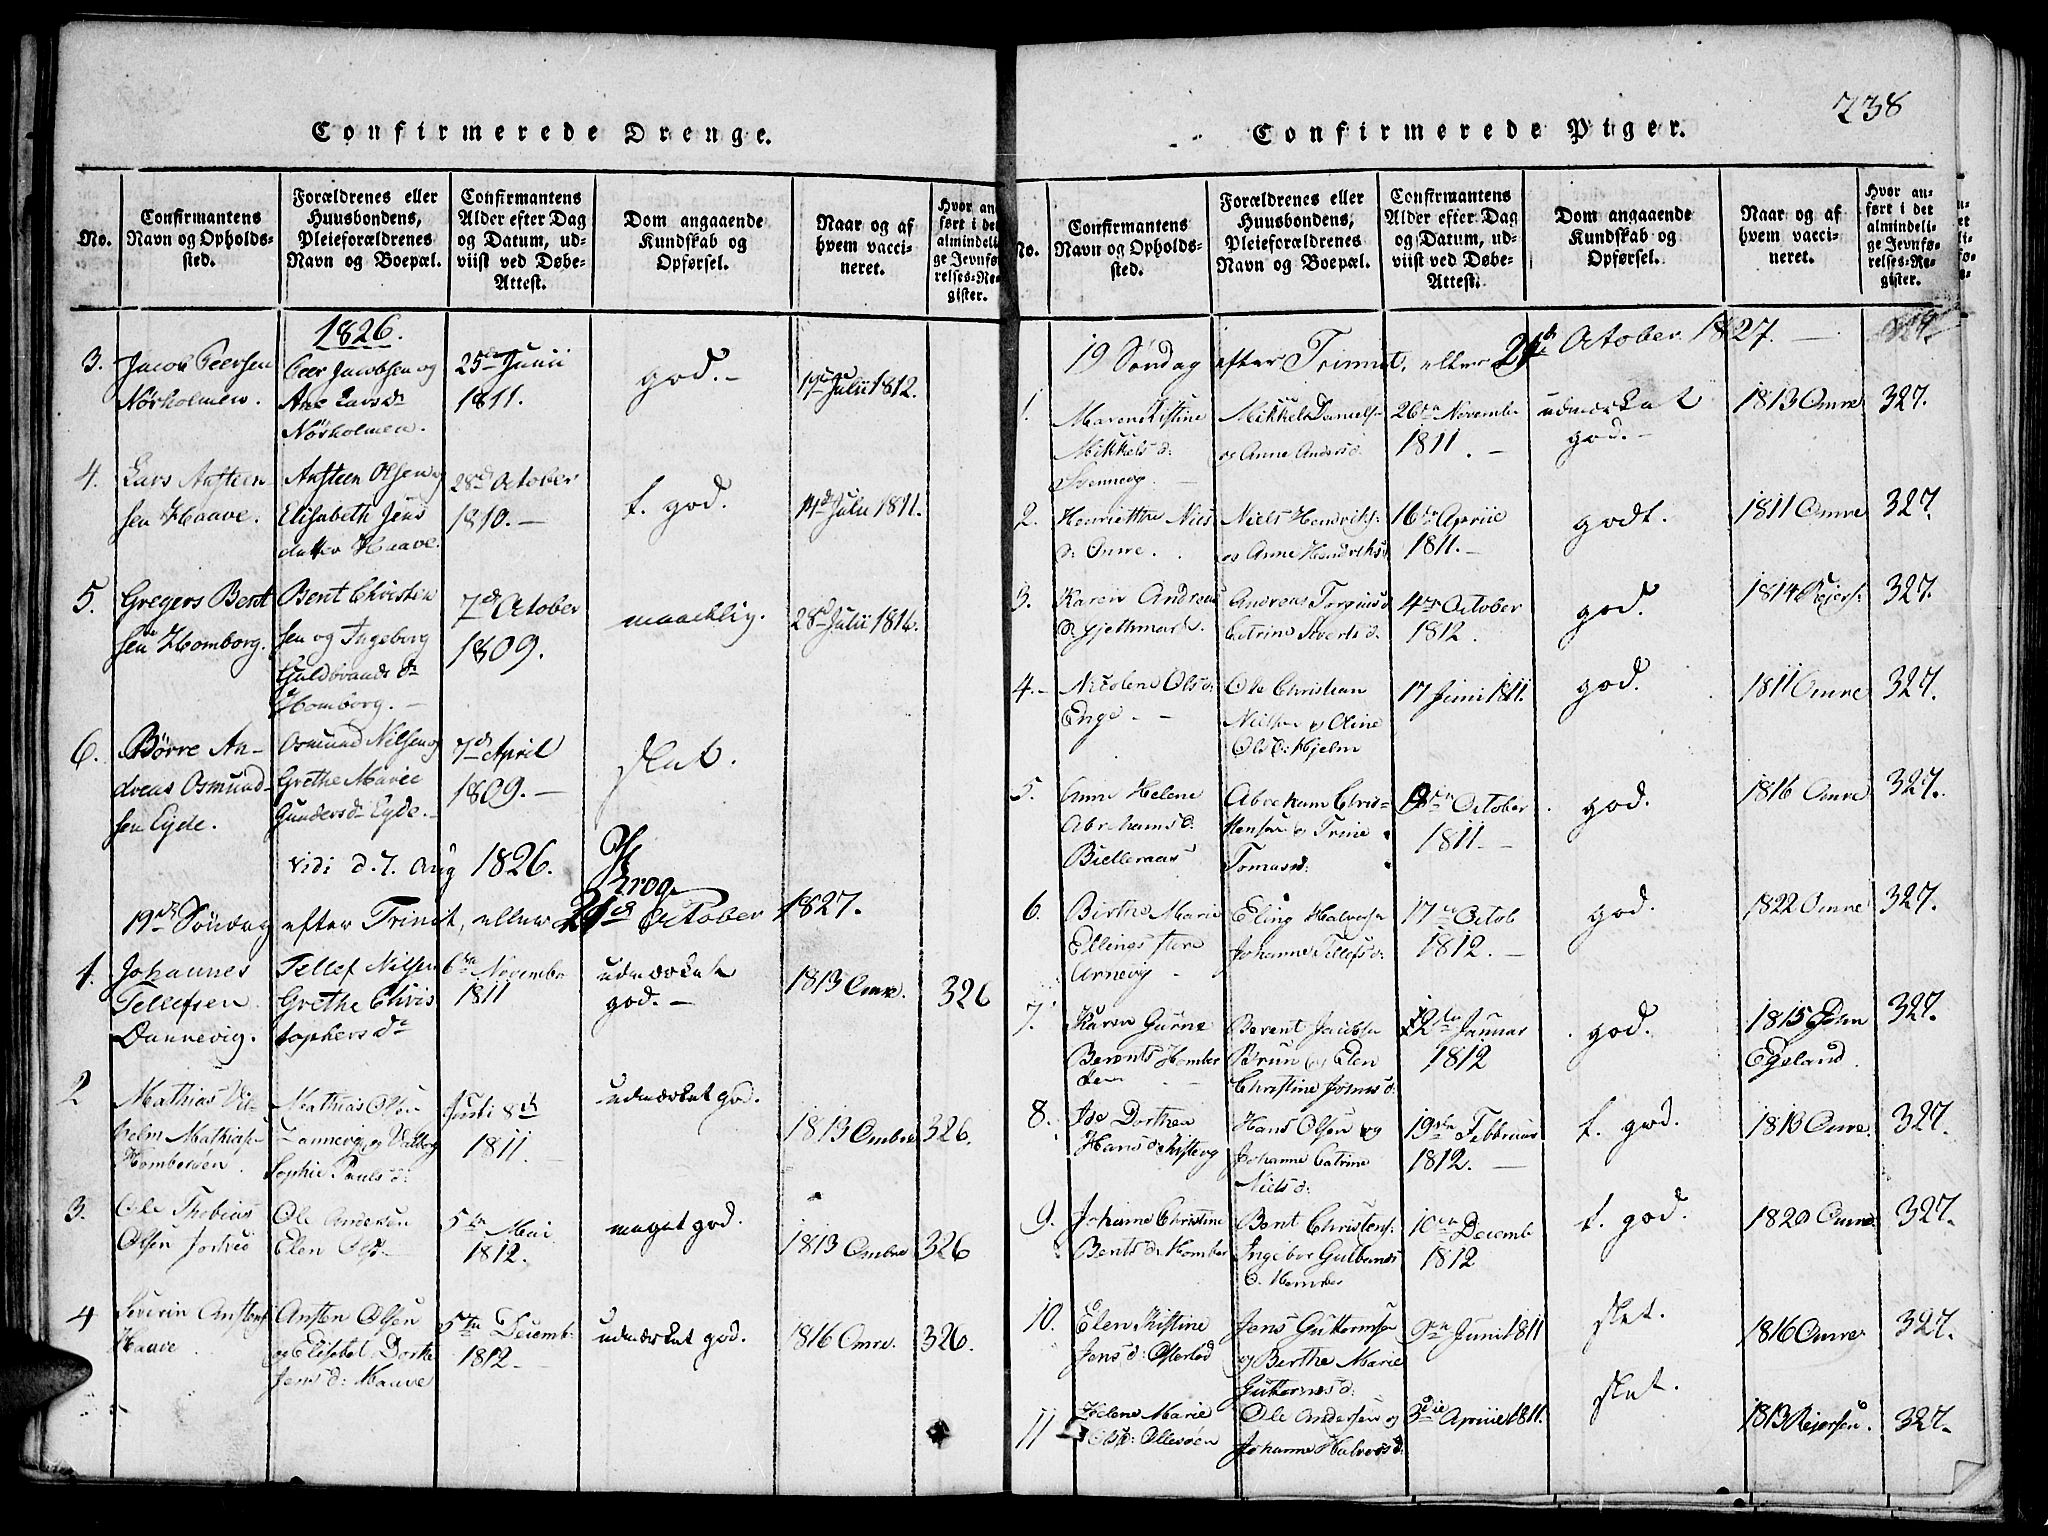 Confirmerede Drenge.
No.
Confirmantens
Navn og Opholds-
sted.
Forældrenes eller
Huusbondens,
Pleieforældrenes
Navn og Boepæl.
Confirmantens
Alder efter Dag
og Datum, ud-
viist ved Døbe-
Attest.
Dom angaaende
Kundskab og
Opførsel.
Naar og af
hvem vacci-
neret.
Hvor an
ført i de
almindeli
ge Jevnfø
relses-Re
gister.
1826.
3.
Jacob Peersen
Nörholmen.
Peer Jacobsen og
Ane Larsd
Nörholmen.
25de Junii
1811.
god.-
Julii 1812.
4.
Lars Ansteen-
sen Haave.
Ansteen Olsen og
Elisabeth Jens
datter Haave.
28de October
1810.-
t. god.
14d Julii 1811.
5.
Gregers Bent
sen Homborg.
Bent Christen
sen og Ingeborg
Guldbrands dr
Homborg.-
7d October
1809.
maadelig.
28d Julii 1814.
6.
Børre An-
dreas Osmund-
sen Eyde.
Osmund Nilsen og
Grethe Marie
Gundersdr Eyde.-
7d April
1809.-
slet.
vidi d. 7. Aug 1826.
Krog
19de Söndag efter Trinit, eller 21d October 1827.
1.
Johannes
Tellefsen
Dannevig.
Tellef Nilsen
Grethe Chris
tophersdr
6te Novembr
1811
udmærket
god.-
1813 Omre.
326
2
Mathias Vil-
helm Mathias-
Hombersöen.
Mathias Olsen
og Vilborg
Sophie Pauls d:
Juli 8de
1811.
udmærket god.
1813 Ombre
326.
3.
Ole Thobias
Olsen
Ole Andersen
Elen
5te Mai
1812.
meget god.
1813 Ombre
326
4
Severin Anstens
Haave
Ansten Olsen
og Elisabet Dorthe
Jens d: Haave
5te Decemb.
1812-
udmærket god.
1816 Omre.
326.
238
Confirmerede Piger.
No.
Confirmantens
Navn og Opholds-
sted.
Forældrenes eller
Huusbondens,
Pleieforældrenes
Navn og Boepæl.
Confirmantens
Alder efter Dag
og Datum, ud-
viist ved Døbe-
Attest.
Dom angaaende
Kundskab og
Opførsel.
Naar og af
hvem vacci-
neret.
Hvor an-
ført i det
almindeli-
ge Jevnfø-
relses-Re-
gister.
19 Söndag efter Trinnit, eller 21de October 1827.-
1.
Maren Kistine
Mikkels d:
Mikkel Daniels-
og Anne Anders d.
26de Novembr
1811.-
udmærket
god.-
1813 Omre
327.
2.
Henriette Niels
d: Omre.
Niels Hendriks-
og Anne Hendriks d
16de Apriie
1811.-
godt.
1811 Omre
327.
3.
Karen Andreas
d:
Andreas
Catrine Siverts d.
4de October
1812.
god.
1814 Reiers-
327.
4.-
Nicolene Ols d:
Enge.-
Ole Christian
Nielsen og Oline
Ols d: Hjelm
17 Juni 1811.
god.
1811 Omre
327.
5.
Anne Helene
Abrahams d:
Abraham Chris-
tensen og Trine
Tomas d:
October
1811.-
god.
1816 Omre
327.
6.
Birthe Marie
Ellings
Arnevig-
Eling Halvorsen
Johanne Tellefs d:
17de Octob
1812.-
god.
1822 Omre
327.
7.
Karen Gurine
Berents Hombor
Berent Jacobsen
Brun og Elen
Christine Johns d:
12te Januar
1812
god.
1815 John
Egeland
327.
8.
Ise Dorthea
Hans d:
Hans Olsen og
Johanne Catrine
Niels d:
19de Februar
1812.-
t. god.
1813 Omre.
327.
9.
Johanne Christine
Bents d: Hombor
Bent Christens-
Ingebor Gulbrans
d. Hombor
10de Decemb
1812
t. god.
1820 Omre
327.
10.
Elen Kistine
Jens d:
Jens Guttormsen
og Berthe Marie
Guttorms d:
9de Juni 1811
slet.
1816 Omre
327.
11
Helene Marie
Ols d:
Ole Andersen og
Johanne Halvors d:
3die Apriie 1811.
slet.
1813 Reiersen.
327.